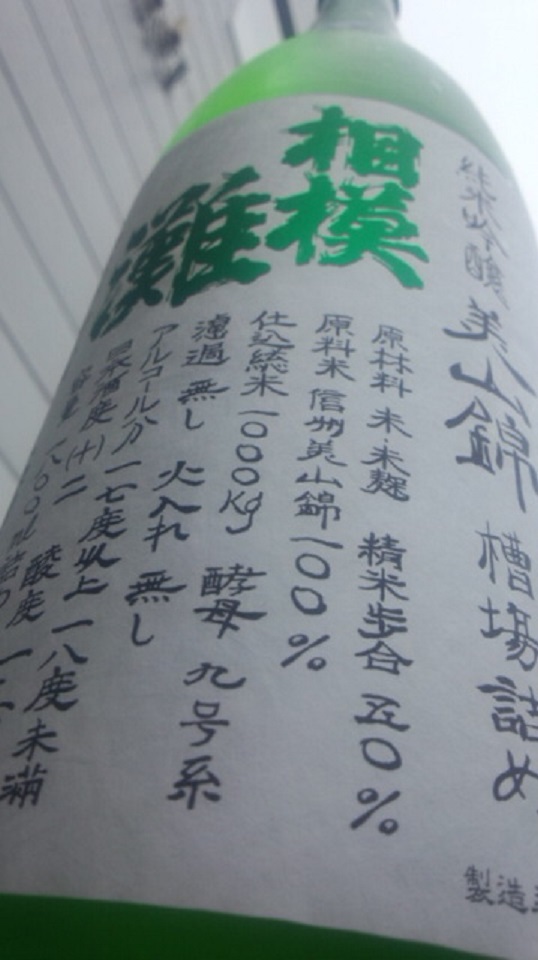 純米吟醸 美山錦 槽場詰め
製造
相模
灘
原材料 米・米麹 精米歩合 五〇%
原料米 信州美山錦一〇〇%
仕込総米 一〇〇〇kg 酵母 九号系
濾過 無し 火入れ 無し
アルコール分 一七度以上 一八度未満
日本酒度 (十)二 酸度 一
容量 一八〇〇ml 詰